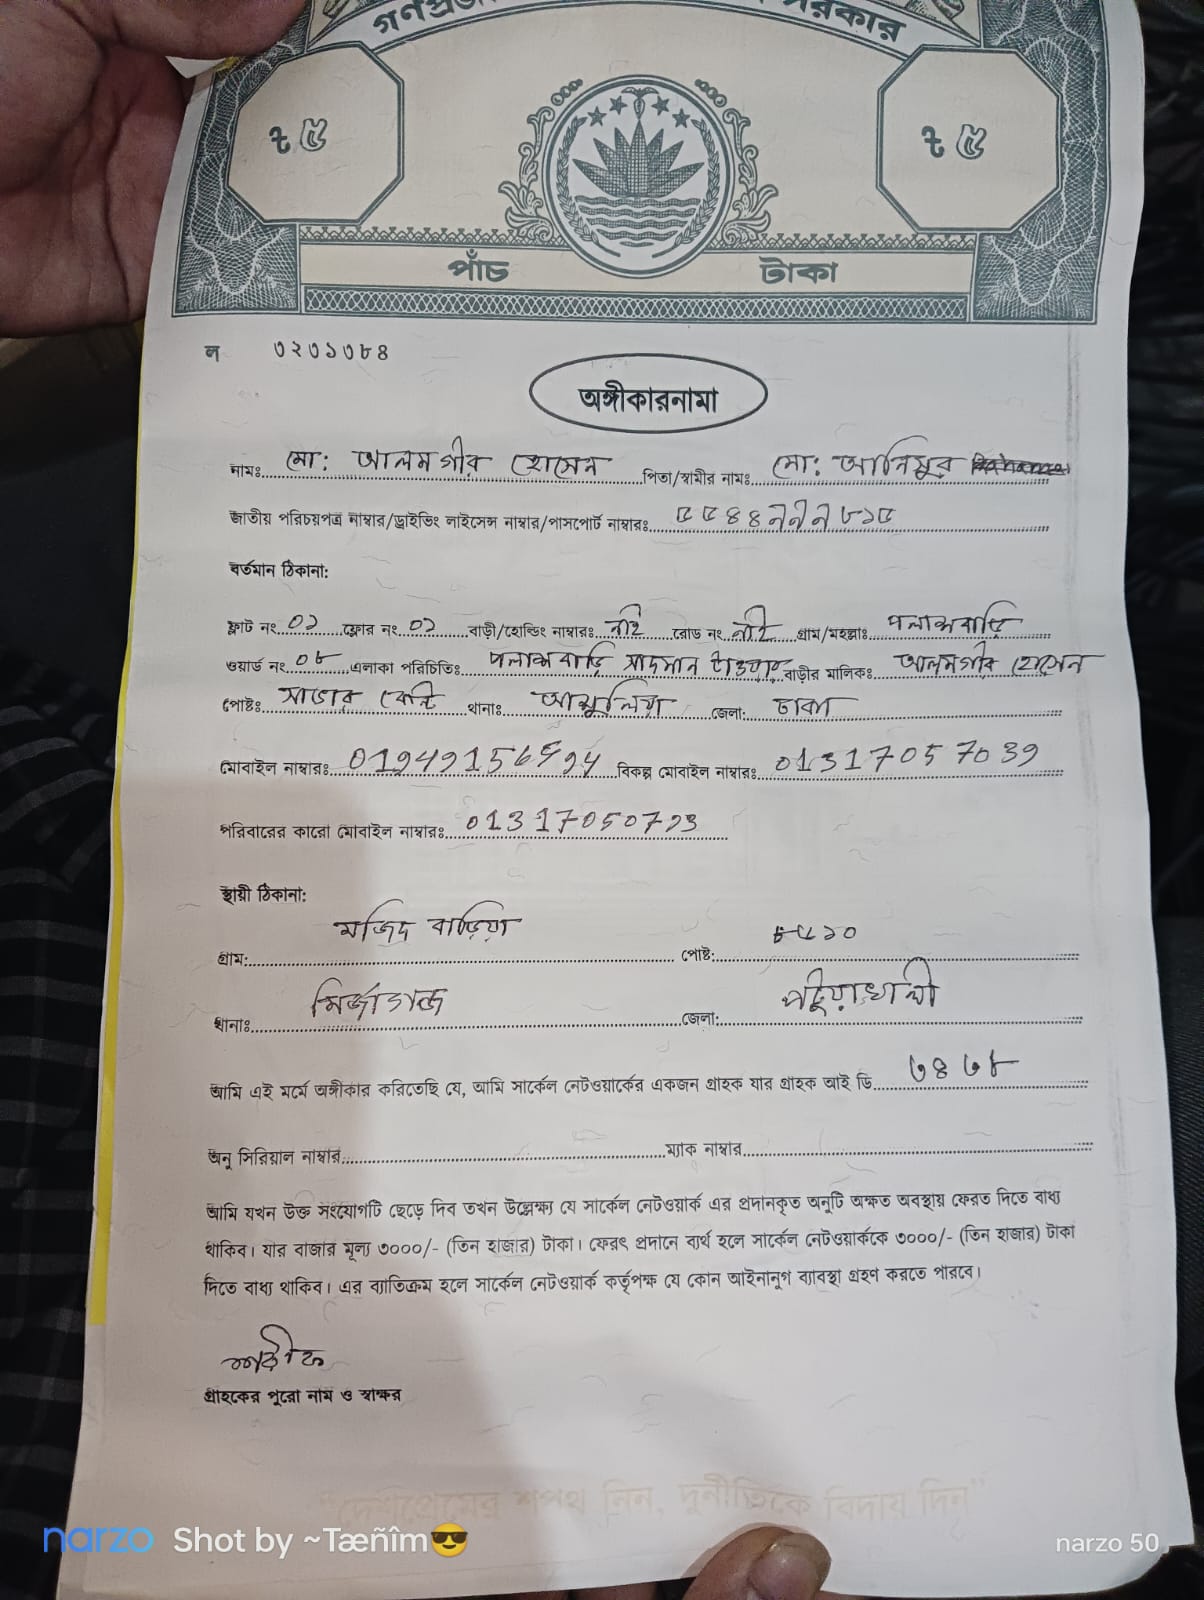 ৳ ৫ ৳ ৫
পাঁচ টাকা
ল ৩২৩১৩৮৪
অঙ্গীকারনামা
নামঃ মো: আলমগীর হোসেন পিতা/স্বামীর নামঃ মো: আনিসুর
জাতীয় পরিচয়পত্র নাম্বার/ড্রাইভিং লাইসেন্স নাম্বার/পাসপোর্ট নাম্বারঃ ৫৫৪৪৭৭৭৮১৫
বর্তমান ঠিকানা:
ফ্লাট নং ০১ ফ্লোর নং ০১ বাড়ী/হোল্ডিং নাম্বারঃ নাই রোড নং নাই গ্রাম/মহল্লাঃ পলাশবাড়ি
ওয়ার্ড নং ০৮ এলাকা পরিচিতিঃ পলাশবাড়ি সাদমান টাওয়ার বাড়ীর মালিকঃ আলমগীর হোসেন
পোষ্টঃ সাভার কেন্ট থানাঃ আশুলিয়া জেলা: ঢাকা
মোবাইল নাম্বারঃ বিকল্প মোবাইল নাম্বারঃ 01317057039
পরিবারের কারো মোবাইল নাম্বারঃ
স্থায়ী ঠিকানা:
গ্রাম: মজিদ বাড়িয়া পোষ্ট:
থানাঃ মির্জাগঞ্জ জেলা: পটুয়াখালী
আমি এই মর্মে অঙ্গীকার করিতেছি যে, আমি সার্কেল নেটওয়ার্কের একজন গ্রাহক যার গ্রাহক আই ডি ৩৪৩৮
অনু সিরিয়াল নাম্বার ম্যাক নাম্বার
আমি যখন উক্ত সংযোগটি ছেড়ে দিব তখন উল্লেক্ষ্য যে সার্কেল নেটওয়ার্ক এর প্রদানকৃত অনুটি অক্ষত অবস্থায় ফেরত দিতে বাধ্য
থাকিব। যার বাজার মূল্য ৩০০০/- (তিন হাজার) টাকা। ফেরৎ প্রদানে ব্যর্থ হলে সার্কেল নেটওয়ার্ককে ৩০০০/- (তিন হাজার) টাকা
দিতে বাধ্য থাকিব। এর ব্যাতিক্রম হলে সার্কেল নেটওয়ার্ক কর্তৃপক্ষ যে কোন আইনানুগ ব্যাবস্থা গ্রহণ করতে পারবে।
গ্রাহকের পুরো নাম ও স্বাক্ষর
“দেশপ্রেমের শপথ নিন, দুর্নীতিকে বিদায় দিন”
narzo Shot by ~Tæñîm😎 narzo 50